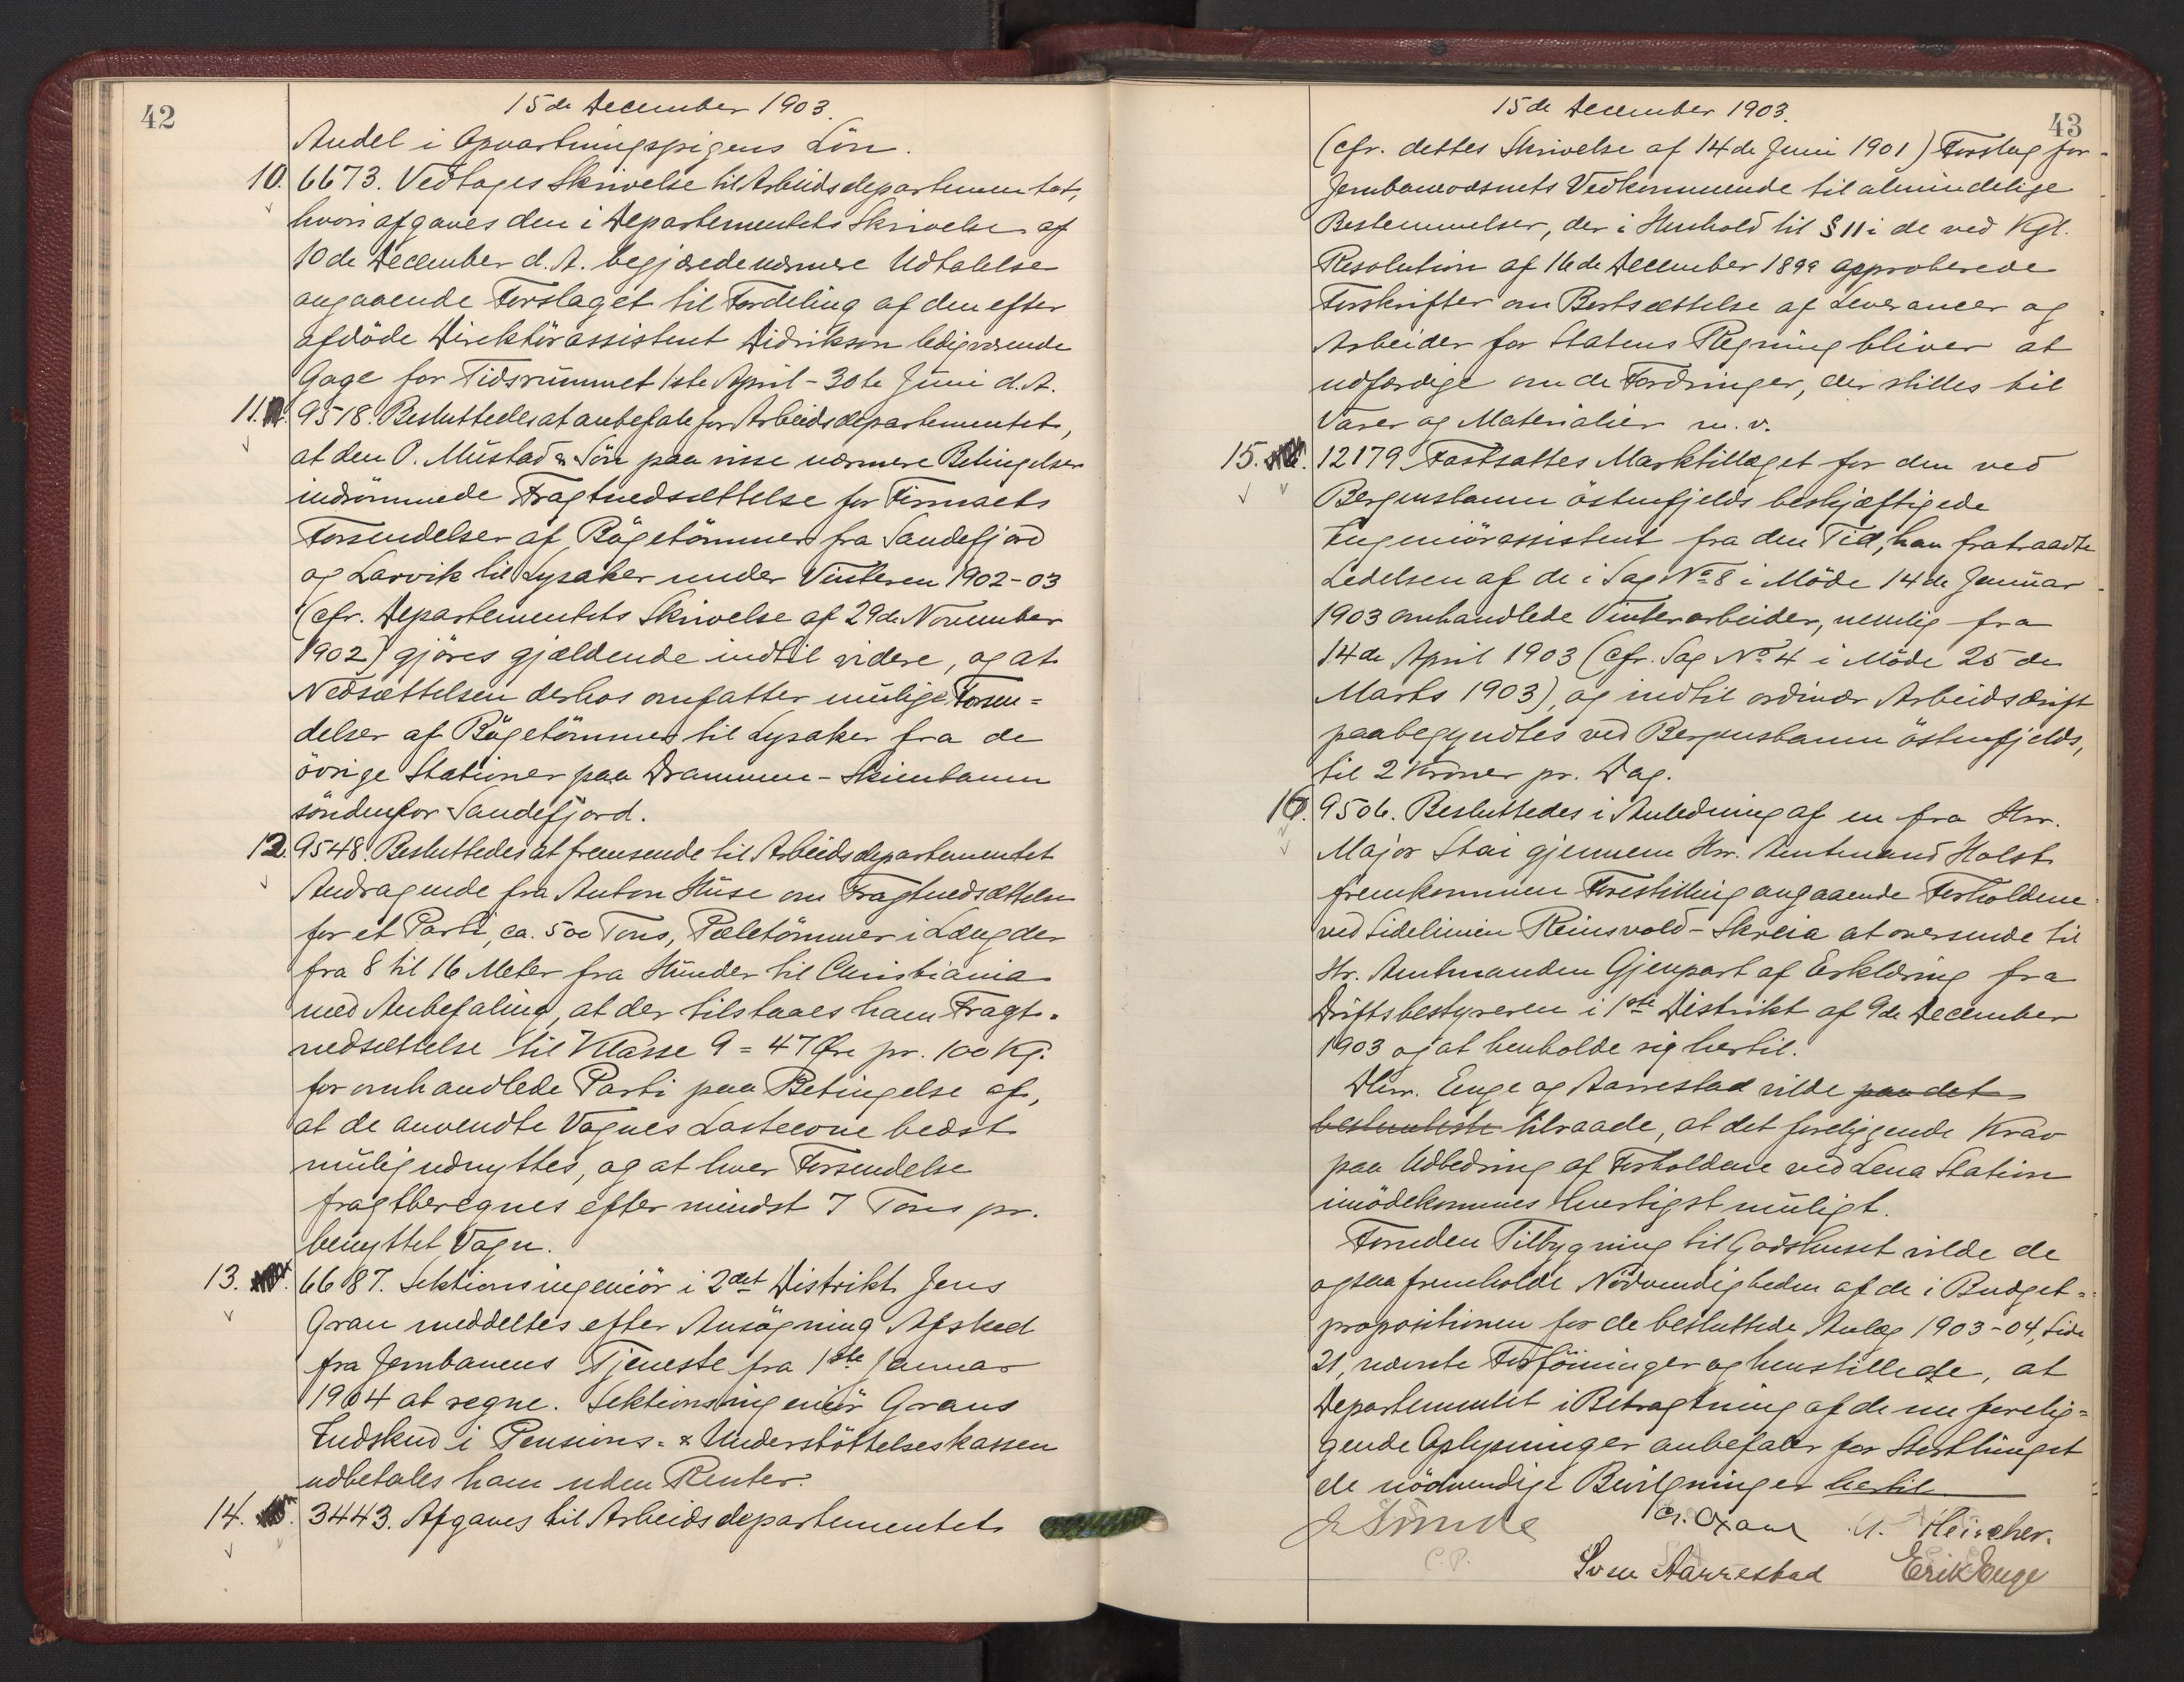 42
15de December 1903.
Andel i Opvartningspigens Lön.
10. 6673. Vedtages Skrivelse til Arbeidsdepartementet,
hvori afgaves den i Departementets Skrivelse af
10de December d. A. begjærede nærmere Udtalelse
angaaende Forslaget til Fordeling af den efter
afdöde Direktörassistent Didrikson ledigværende
Gage for Tidsrummet 1ste April - 30te Juni d. A.
11. 9518. Besluttedes at anbefale for Arbeidsdepartementet,
at den O. Mustad & Sön paa visse nærmere Betingelser
indrömmede Fragtnedsættelse for Firmaets
Forsendelser af Bögetömmer fra Sandefjord
og Larvik til Lysaker under Vinteren 1902-03
(cfr. Departementets Skrivelse af 29de November
1902) gjöres gjældende indtil videre, og at
Nedsættelsen derhos omfatter mulige Forsen=
delser af Bögetömmer til Lysaker fra de
övrige Stationer paa Drammen - Skienbanen
söndenfor Sandefjord.
12. 9548. Besluttedes at fremsende til Arbeidsdepartementet
Andragende fra Anton Huse om Fragtnedsættelse
for et Parti, ca. 500 Tons, Pæletömmer i Længder
fra 8 til 16 Meter fra Hunder til Christiania
med Anbefaling, at der tilstaaes ham Fragt-
nedsættelse til Klasse 9 = 47 Øre pr. 100 Kg.
for omhandlede Parti paa Betingelse af,
at de anvendte Vognes Lasteevne bedst
mulig udnyttes, og at hver Forsendelse
fragtberegnes efter mindst 7 Tons pr.
benyttet Vogn.
13. 6687. Sektionsingeniör i 2det Distrikt Jens
Gran meddeltes efter Ansögning Afsked
fra Jernbanens Tjeneste fra 1ste Januar
1904 at regne. Sektionsingeniör Grans
Indskud i Pensions- & Understöttelseskassen
udbetales ham uden Renter.
14. 3443. Afgaves til Arbeidsdepartementet
43
15de December 1903.
(cfr. dettes Skrivelse af 14de Juni 1901) Forslag for
Jernbanevæsnets Vedkommende til almindelige
Bestemmelser, der i Henhold til § 11 i de ved Kgl.
Resolution af 16de December 1899 approberede
Forskrifter om Bortsættelse af Leverancer og
Arbeider for Statens Regning bliver at
udfærdige om de Fordringer, der stilles til
Varer og Materialier m. v.
15. 12179. Fastsattes Marktillæget for den ved
Bergensbanen östenfjelds beskjæftigede
Ingeniörassistent fra den Tid, han fratraadte
Ledelsen af de i Sag No 8 i Möde 14de Januar
1903 omhandlede Vinterarbeider, nemlig fra
14de April 1903 (cfr. Sag No 4 i Möde 25de
Marts 1903), og indtil ordinær Arbeidsdrift
paabegyndtes ved Bergensbanen östenfjelds,
til 2 Kroner pr. Dag.
16. 9506. Besluttedes i Anledning af en fra Hr.
Major Stai gjennem Hr. Amtmand Holst
fremkommen Forestilling angaaende Forholdene
ved Sidelinien Reinsvold - Skreia at oversende til
Hr. Amtmanden Gjenpart af Erklæring fra
Driftsbestyreren i 1ste Distrikt af 9de December
1903 og at henholde sig hertil.
DHrr. Enge og Aarrestad vilde paa det
bestemteste tilraade, at det foreliggende Krav
paa Udbedring af Forholdene ved Lena Station
imödekommes hurtigst muligt.
Foruden Tilbygning til Godshuset vilde de
ogsaa fremholde Nödvendigheden af de i Budget=
propositionen for de besluttede Anlæg 1903-04, Side
21, nævnte Forföininger og henstillede, at
Departementet i Betragtning af de nu forelig=
gende Oplysninger anbefaler for Storthinget
de nödvendige Bevilgninger hertil
E Sunde
A. Fleischer.
C.P.
Sven Aarrestad
Erik Enge